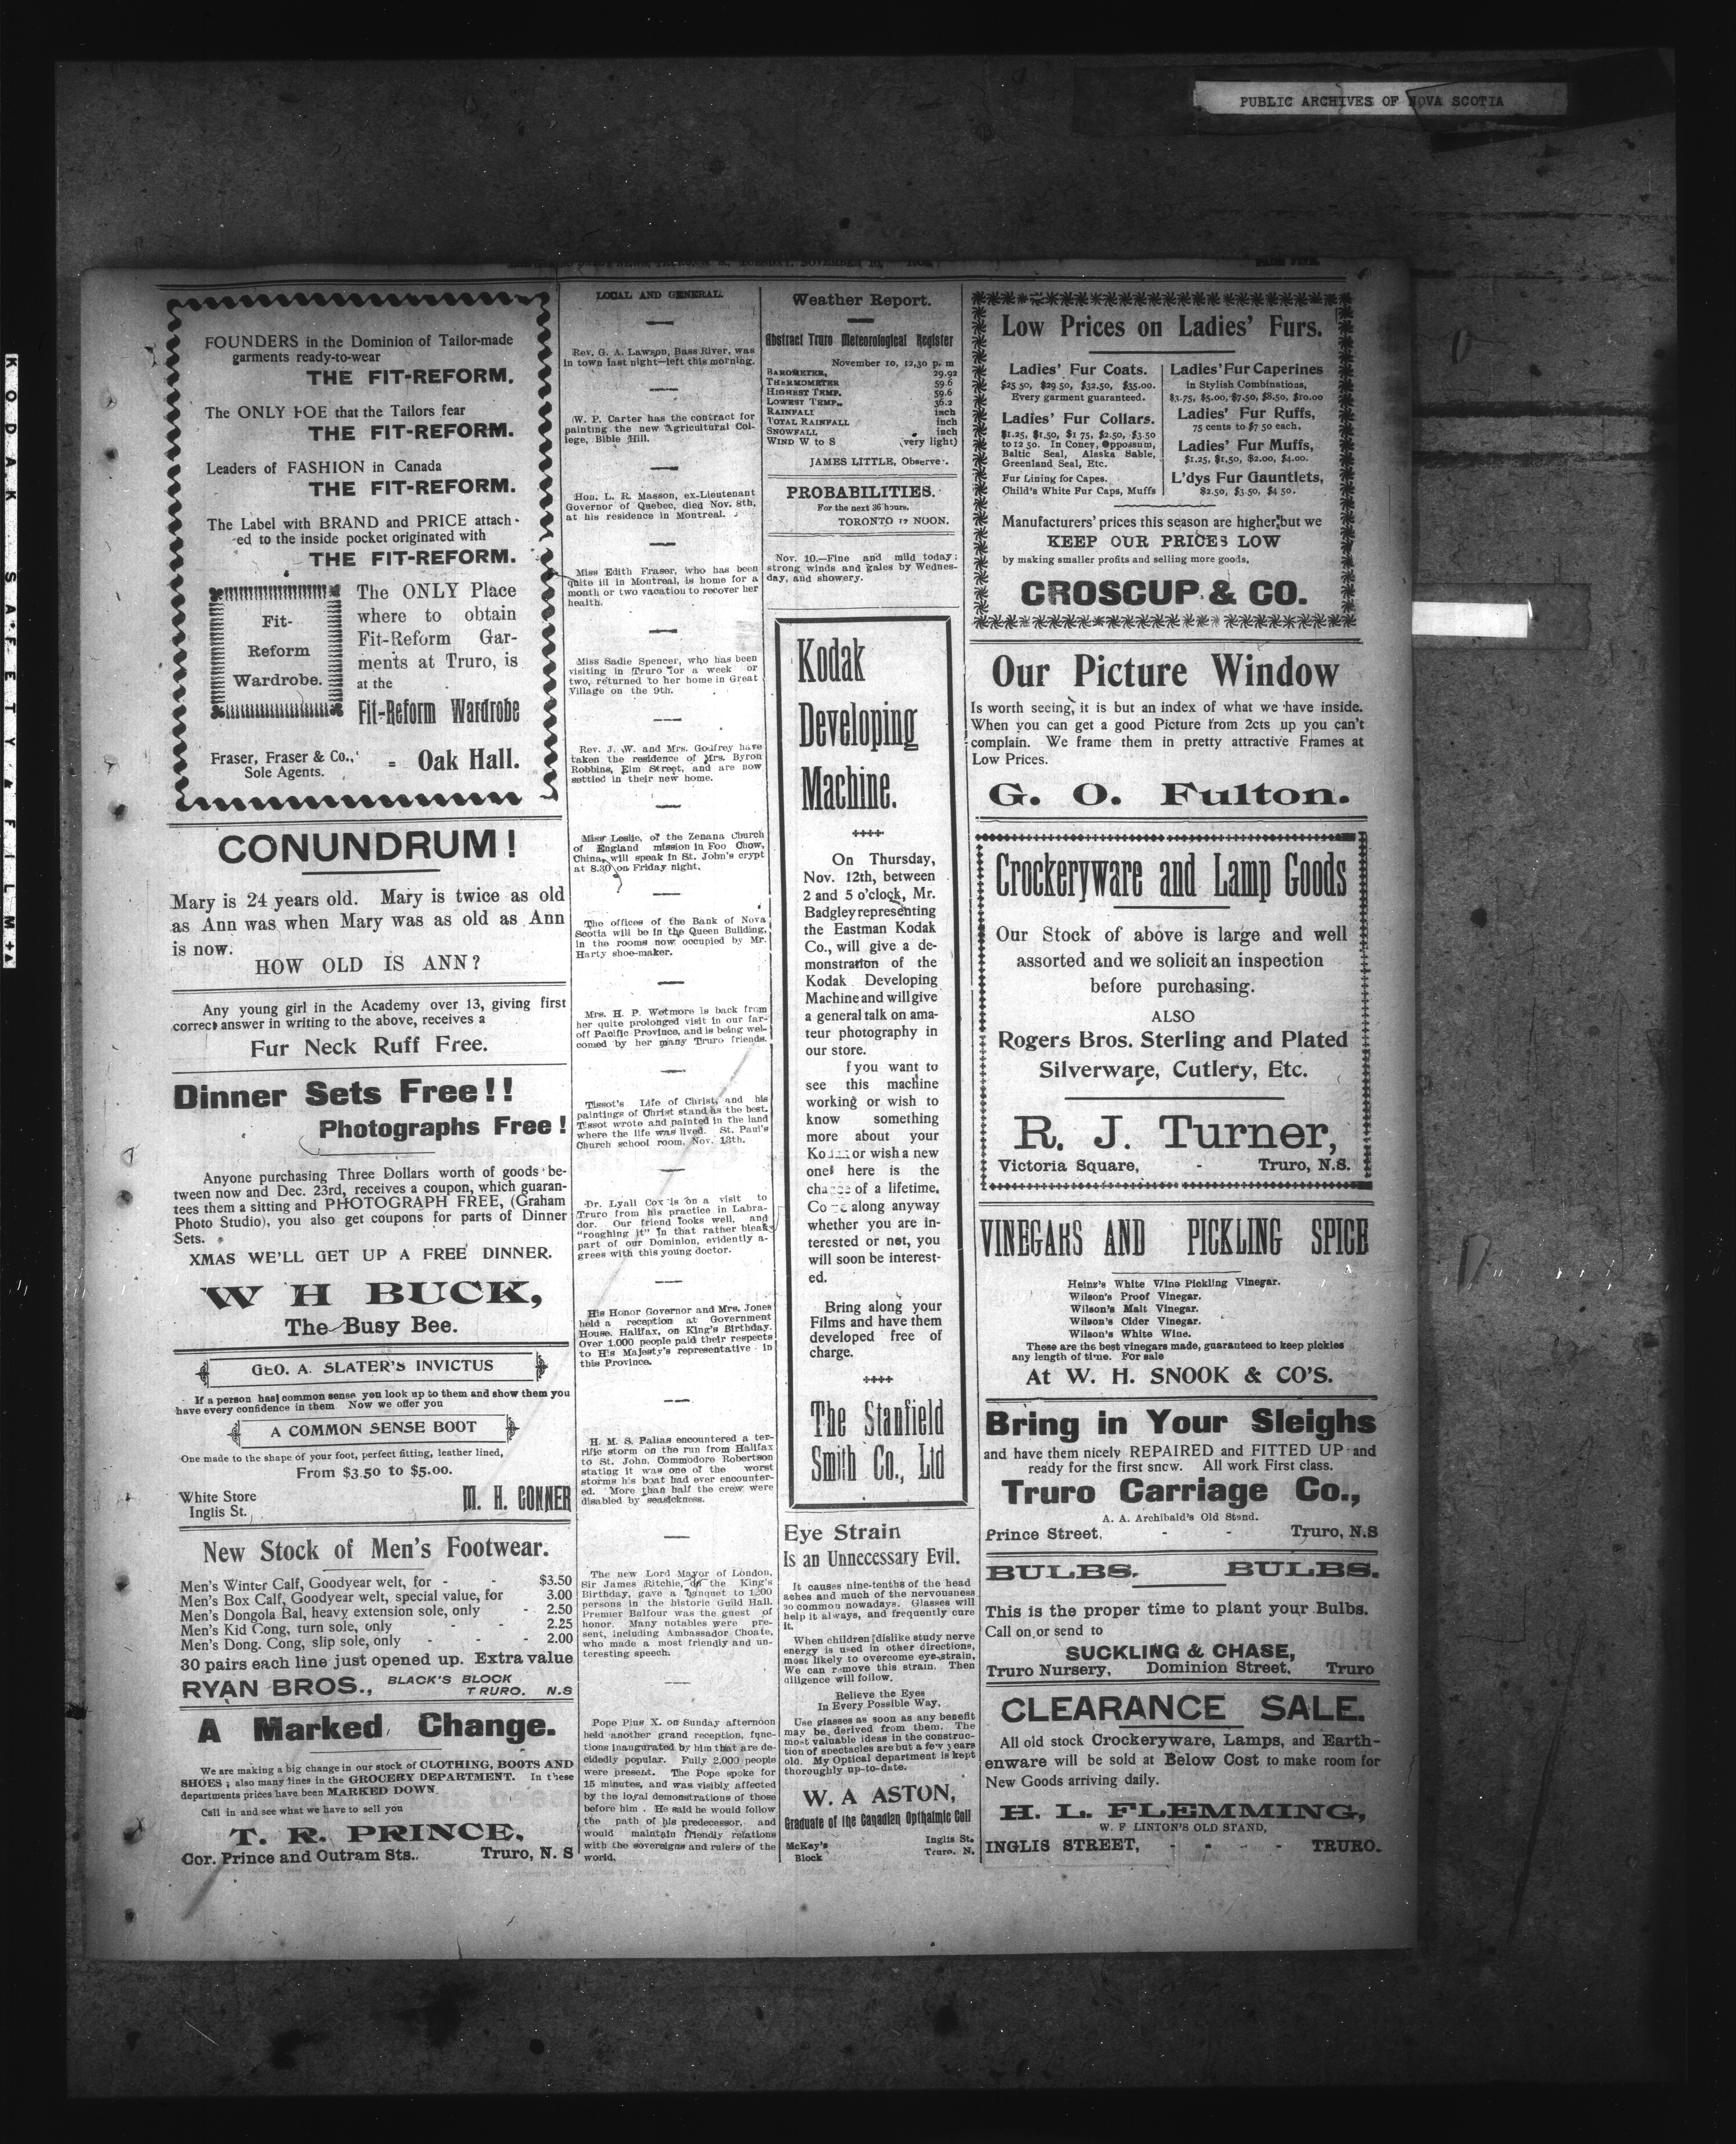 PUBLIC ARCHIVES OF NOVA SCOTIA
KODAK SAFETY FILM
TUESDAY, NOVEMBER 10,
PAGE FIVE.
FOUNDERS in the Dominion of Tailor-made
garments ready-to-wear
THE FIT-REFORM.
The ONLY FOE that the Tailors fear
THE FIT-REFORM.
Leaders of FASHION in Canada
THE FIT-REFORM.
The Label with BRAND and PRICE attach-
ed to the inside pocket originated with
THE FIT-REFORM.
Fit-
Reform
Wardrobe.
The ONLY Place
where to obtain
Fit-Reform Gar-
ments at Truro, is
at the
Fit-Reform Wardrobe
Fraser, Fraser & Co.,
Sole Agents.
= Oak Hall.
CONUNDRUM!
Mary is 24 years old. Mary is twice as old
as Ann was when Mary was as old as Ann
is now.
HOW OLD IS ANN?
Any young girl in the Academy over 13, giving first
correct answer in writing to the above, receives a
Fur Neck Ruff Free.
Dinner Sets Free!!
Photographs Free!
Anyone purchasing Three Dollars worth of goods be-
tween now and Dec. 23rd, receives a coupon, which guaran-
tees them a sitting and PHOTOGRAPH FREE, (Graham
Photo Studio), you also get coupons for parts of Dinner
Sets.
XMAS WE'LL GET UP A FREE DINNER.
W H BUCK,
The Busy Bee.
GEO. A. SLATER'S INVICTUS
If a person has common sense you look up to them and show them you
have every confidence in them Now we offer you
A COMMON SENSE BOOT
One made to the shape of your foot, perfect fitting, leather lined,
From $3.50 to $5.00.
White Store
Inglis St.
M. H. CONNER
New Stock of Men's Footwear.
Men's Winter Calf, Goodyear welt, for - - $3.50
Men's Box Calf, Goodyear welt, special value, for 3.00
Men's Dongola Bal, heavy extension sole, only - 2.50
Men's Kid Cong, turn sole, only - - 2.25
Men's Dong. Cong, slip sole, only - - - 2.00
30 pairs each line just opened up. Extra value
RYAN BROS., BLACK'S BLOCK
TRURO. N.S
A Marked Change.
We are making a big change in our stock of CLOTHING, BOOTS AND
SHOES; also many lines in the GROCERY DEPARTMENT. In these
departments prices have been MARKED DOWN
Call in and see what we have to sell you
T. R. PRINCE,
Cor. Prince and Outram Sts.. Truro, N. S
LOCAL AND GENERAL.
Rev. G. A. Lawson, Bass River, was
in town last night—left this morning.
W. P. Carter has the contract for
painting the new Agricultural Col-
lege, Bible Hill.
Hon. L. R. Masson, ex-Lieutenant
Governor of Quebec, died Nov. 8th,
at his residence in Montreal.
Miss Edith Fraser, who has been
quite ill in Montreal, is home for a
month or two vacation to recover her
health.
Miss Sadie Spencer, who has been
visiting in Truro for a week or
two, returned to her home in Great
Village on the 9th.
Rev. J. W. and Mrs. Godfrey have
taken the residence of Mrs. Byron
Robbins, Elm Street, and are now
settled in their new home.
Miss Leslie, of the Zenana Church
of England mission in Foo Chow,
China, will speak in St. John's crypt
at 8.30 on Friday night.
The offices of the Bank of Nova
Scotia will be in the Queen Building,
in the rooms now occupied by Mr.
Harty shoe-maker.
Mrs. H. P. Wetmore is back from
her quite prolonged visit in our far-
off Pacific Province, and is being wel-
comed by her many Truro friends.
Tissot's Life of Christ, and his
paintings of Christ stand as the best.
Tissot wrote and painted in the land
where the life was lived. St. Paul's
Church school room, Nov. 13th.
Dr. Lyall Cox is on a visit to
Truro from his practice in Labra-
dor. Our friend looks well, and
"roughing it" in that rather bleak
part of our Dominion, evidently a-
grees with this young doctor.
His Honor Governor and Mrs. Jones
held a reception at Government
House, Halifax, on King's Birthday.
Over 1,000 people paid their respects
to His Majesty's representative in
this Province.
H. M. S. Pallas encountered a ter-
rific storm on the run from Halifax
to St. John, Commodore Robertson
stating it was one of the worst
storms his boat had ever encounter-
ed. More than half the crew were
disabled by seasickness.
The new Lord Mayor of London,
Sir James Ritchie, on the King's
Birthday, gave a banquet to 1200
persons in the historic Guild Hall.
Premier Balfour was the guest of
honor. Many notables were pre-
sent, including Ambassador Choate,
who made a most friendly and un-
teresting speech.
Pope Pius X. on Sunday afternoon
held another grand reception, func-
tions inaugurated by him that are de-
cidedly popular. Fully 2,000 people
were present. The Pope spoke for
15 minutes, and was visibly affected
by the loyal demonstrations of those
before him. He said he would follow
the path of his predecessor, and
would maintain friendly relations
with the sovereigns and rulers of the
world.
Weather Report.
Abstract Truro Meteorological Register
November 10, 12,30 p. m
BAROMETER, 29.92
THERMOMETER 59.6
HIGHEST TEMP. 59.6
LOWEST TEMP.. 36.2
RAINFALL inch
TOTAL RAINFALL inch
SNOWFALL inch
WIND W to S (very light)
JAMES LITTLE, Observer.
PROBABILITIES.
For the next 36 hours.
TORONTO 12 NOON.
Nov. 10.—Fine and mild today;
strong winds and gales by Wednes-
day, and showery.
Kodak
Developing
Machine.
++++
On Thursday,
Nov. 12th, between
2 and 5 o'clock, Mr.
Badgley representing
the Eastman Kodak
Co., will give a de-
monstration of the
Kodak Developing
Machine and will give
a general talk on ama-
teur photography in
our store.
f you want to
see this machine
working or wish to
know something
more about your
or wish a new
one here is the
chance of a lifetime.
Come along anyway
whether you are in-
terested or not, you
will soon be interest-
ed.
Bring along your
Films and have them
developed free of
charge.
++++
The Stanfield
Smith Co., Ltd
Eye Strain
Is an Unnecessary Evil.
It causes nine-tenths of the head
aches and much of the nervousness
so common nowadays. Glasses will
help it always, and frequently cure
it.
When children dislike study nerve
energy is used in other directions,
most likely to overcome eye-strain,
We can remove this strain. Then
diligence will follow.
Relieve the Eyes
In Every Possible Way.
Use glasses as soon as any benefit
may be derived from them. The
most valuable ideas in the construc-
tion of spectacles are but a few years
old. My Optical department is kept
thoroughly up-to-date.
W. A ASTON,
Graduate of the Canadian Opthalmic Coll
McKay's
Block
Inglis St.
Truro. N.
Low Prices on Ladies' Furs.
Ladies' Fur Coats.
$25 50, $29 50, $32.50, $35.00.
Every garment guaranteed.
Ladies' Fur Collars.
$1.25, $1.50, $1 75, $2.50, $3.50
to 12 50. In Coney, Oppossum,
Baltic Seal, Alaska Sable,
Greenland Seal, Etc.
Fur Lining for Capes.
Child's White Fur Caps, Muffs
Ladies' Fur Caperines
in Stylish Combinations,
$3.75, $5.00, $7.50, $8.50, $10.00
Ladies' Fur Ruffs,
75 cents to $7 50 each.
Ladies' Fur Muffs,
$1.25, $1.50, $2.00, $4.00.
L'dys Fur Gauntlets,
$2.50, $3.50, $4 50.
Manufacturers' prices this season are higher but we
KEEP OUR PRICES LOW
by making smaller profits and selling more goods,
CROSCUP & CO.
Our Picture Window
Is worth seeing, it is but an index of what we have inside.
When you can get a good Picture from 2cts up you can't
complain. We frame them in pretty attractive Frames at
Low Prices.
G. O. Fulton.
Crockeryware and Lamp Goods
Our Stock of above is large and well
assorted and we solicit an inspection
before purchasing.
ALSO
Rogers Bros. Sterling and Plated
Silverware, Cutlery, Etc.
R. J. Turner,
Victoria Square, - Truro, N.S.
VINEGARS AND PICKLING SPICE
Heinz's White Wine Pickling Vinegar.
Wilson's Proof Vinegar.
Wilson's Malt Vinegar.
Wilson's Cider Vinegar.
Wilson's White Wine.
These are the best vinegars made, guaranteed to keep pickles
any length of time. For sale
At W. H. SNOOK & CO'S.
Bring in Your Sleighs
and have them nicely REPAIRED and FITTED UP and
ready for the first snow. All work First class.
Truro Carriage Co.,
A. A. Archibald's Old Stand.
Prince Street, - - Truro, N.S
BULBS. BULBS.
This is the proper time to plant your Bulbs.
Call on or send to
SUCKLING & CHASE,
Truro Nursery, Dominion Street, Truro
CLEARANCE SALE.
All old stock Crockeryware, Lamps, and Earth-
enware will be sold at Below Cost to make room for
New Goods arriving daily.
H. L. FLEMMING,
W. F LINTON'S OLD STAND,
INGLIS STREET, - - - - TRURO.